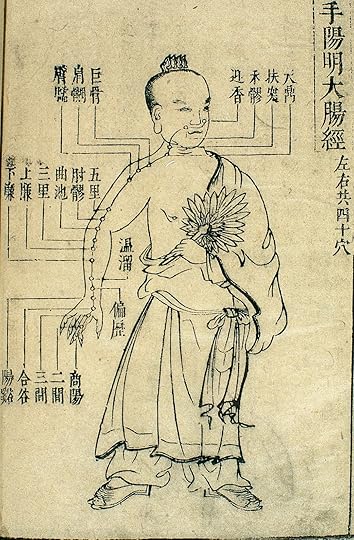 手陽明大腸經
左右共四十穴
天鼎
扶突
禾髎
迎香
巨骨
肩髃
臂臑
五里
肘髎
曲池
三里
上廉
下廉
温溜
偏歷
商陽
二間
三間
合谷
陽谿